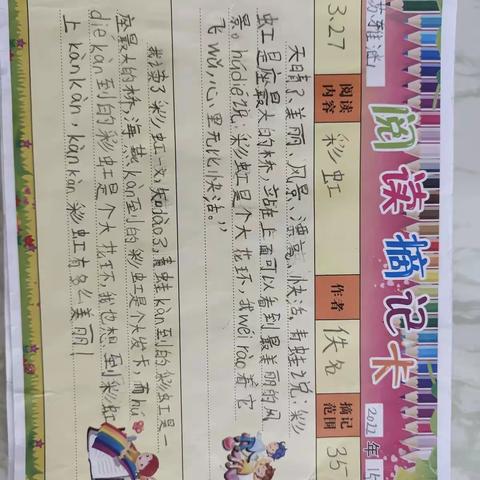 阅读摘记卡
2022年
3、27
阅读内容
彩虹
作者
佚名
摘记范围
35
天晴了、美丽、风景、漂亮、快活、青蛙说:彩
虹是座最大的桥,站在上面可以看到最美的风
景。húdié说:彩虹是个大花环,我wéi rào着它
飞wǔ,心里无比快活。”
我读了彩虹一文,知dào了,青蛙kàn到的彩虹是一
座最大的桥,海燕kàn到的彩虹是个大发卡,而hú
dié kàn到的彩虹是个大花环,我也想到彩虹
上kànkàn,kànkàn彩虹有多么美丽!